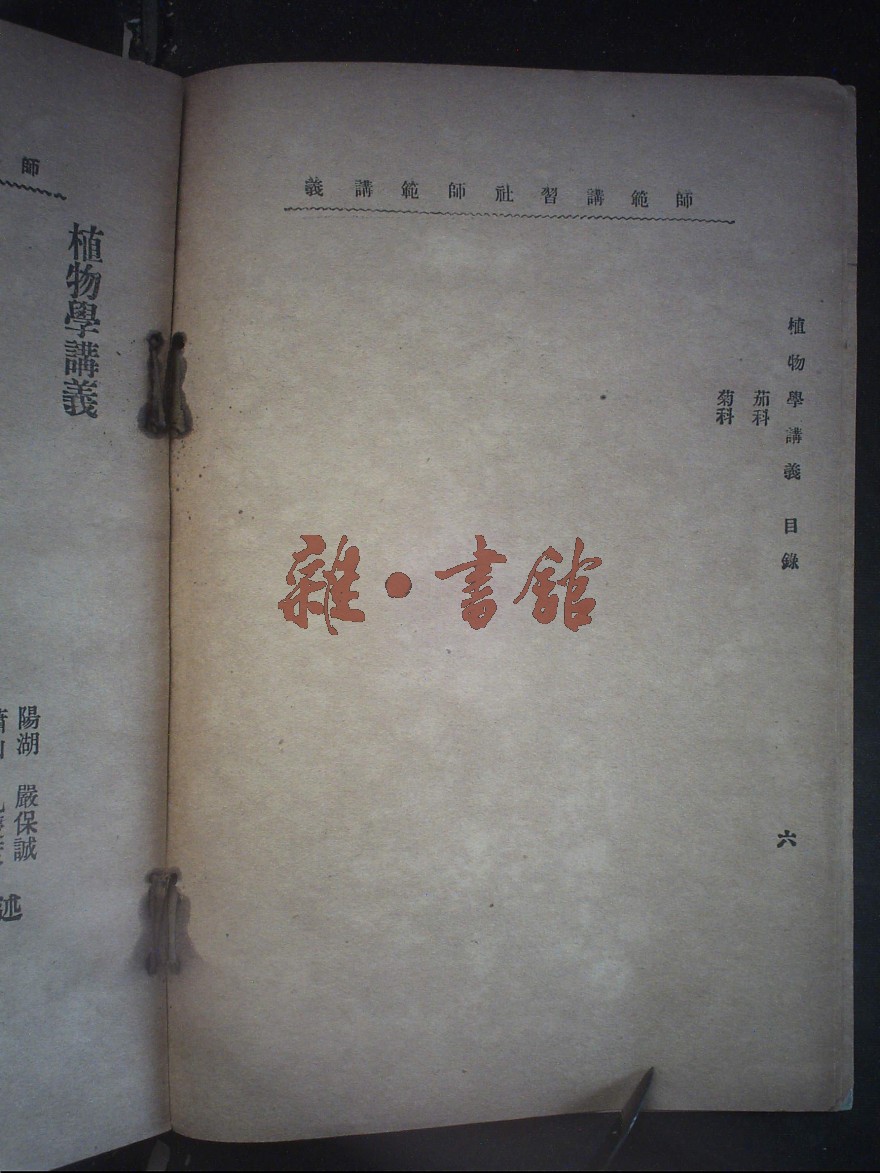 師範講習社師範講義
植物學講義 目錄
茄科
菊科
六
雜·書館
師
植物學講義
陽湖 嚴保誠
述